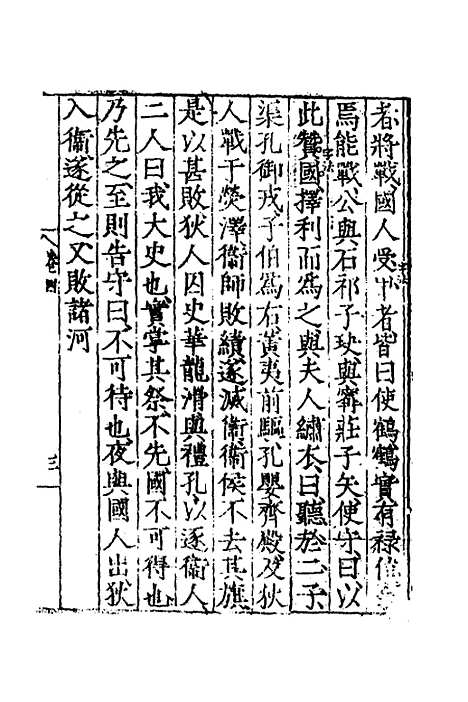 者將戰國人受甲者皆曰使鶴鶴實有祿
焉能戰公與石祁子玦與甯莊子矢使守曰以
此贊國擇利而爲之與夫人繡衣曰聽於二子
渠孔御戎子伯爲右黃夷前驅孔嬰齊殿及狄
人戰于熒澤衞師敗績遂滅衞衞侯不去其旗
是以甚敗狄人囚史華龍滑與禮孔以逐衞人
二人曰我大史也實掌其祭不先國不可得也
乃先之至則告守曰不可待也夜與國人出狄
入衞遂從之又敗諸河
卷四
三